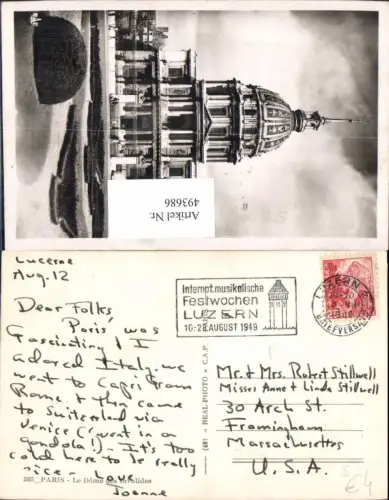 Artikel Nr.
493686
Lucerne
Aug. 12
Dear Folks,
Paris was
fascinating! I
adored Italy. we
went to Capri from
Rome. & then came
to Switzerland via
Venice ("went in a
gondola!) - It's too
cold here to be really
nice - Love
Joanne
585_ PARIS - Le Dôme des Invalides
(49) = REAL-PHOTO = C.A.P.
Internat.musikalische
Festwochen
LUZERN
10-28 AUGUST 1949
LUZERN
BRIEFVERSAND
Mr. & Mrs. Robert Stillwell
Misses Anne & Linda Stillwell
30 Arch St.
Framingham
Massachusettes
U.S.A.
€4